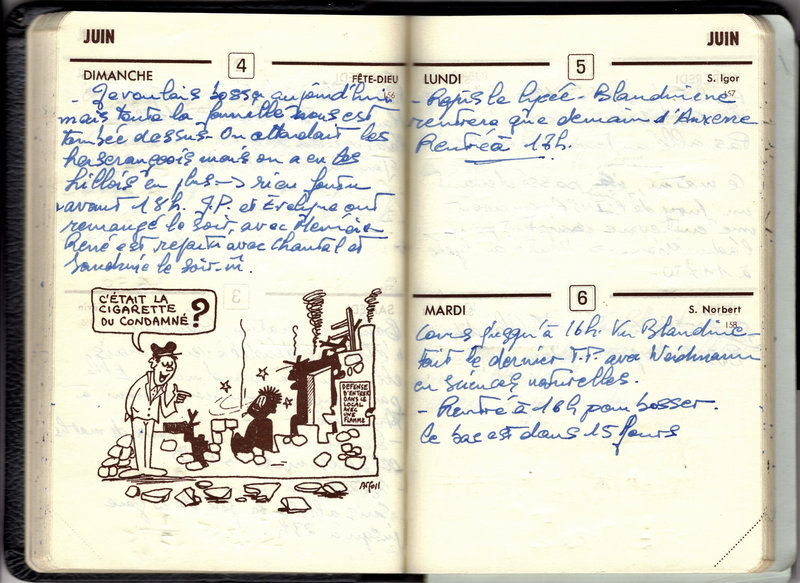 JUIN
4
DIMANCHE
FÊTE-DIEU
156
- Je voulais bosser aujourd'hui
mais toute la famille nous est
tombée dessus. On attendait les
herserangeois mais on a eu les
hillois en plus → rien foutu
avant 18h. J.P. et Evelyne ont
remangé le soir, avec
René est reparti avec Chantal et
Sandrine le soir-m̂.
C'ÉTAIT LA
CIGARETTE
DU CONDAMNÉ ?
DEFENSE
D'ENTRER
DANS LE
LOCAL
AVEC
UNE
FLAMME
JUIN
5
LUNDI
S. Igor
157
- Repris le lycée - Blandine ne
rentrera que demain d'Auxerre
Rentré à 17h.
6
MARDI
S. Norbert
158
Cours jusqu'à 16h. Vu Blandine
fait le dernier T.P. avec Weidmann
en sciences naturelles.
- Rentré à 16h pour bosser.
le bac est dans 15 jours